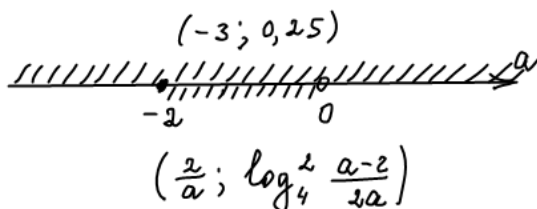 (-3; 0,25)
a
-2 0
(2/a; log₄² (a-2)/(2a))